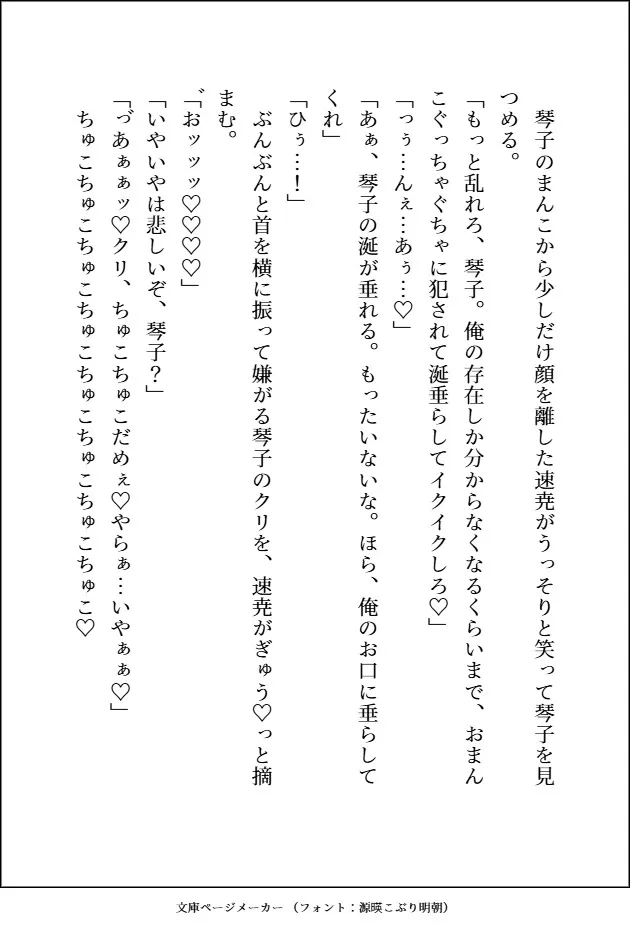 琴子のまんこから少しだけ顔を離した速尭がうっそりと笑って琴子を見
つめる。
「もっと乱れろ、琴子。俺の存在しか分からなくなるくらいまで、おまん
こぐっちゃぐちゃに犯されて涎垂らしてイクイクしろ♡」
「っぅ…んぇ…あぅ…♡」
「あぁ、琴子の涎が垂れる。もったいないな。ほら、俺のお口に垂らして
くれ」
「ひぅ…！」
　ぶんぶんと首を横に振って嫌がる琴子のクリを、速尭がぎゅう♡っと摘
まむ。
「゛おッッッ♡♡♡♡」
「いやいやは悲しいぞ、琴子？」
「゛っあぁぁッ♡クリ、ちゅこちゅこだめぇ♡やらぁ…いやぁぁ♡」
　ちゅこちゅこちゅこちゅこちゅこちゅこちゅこちゅこ♡
文庫ページメーカー（フォント：源暎こぶり明朝）